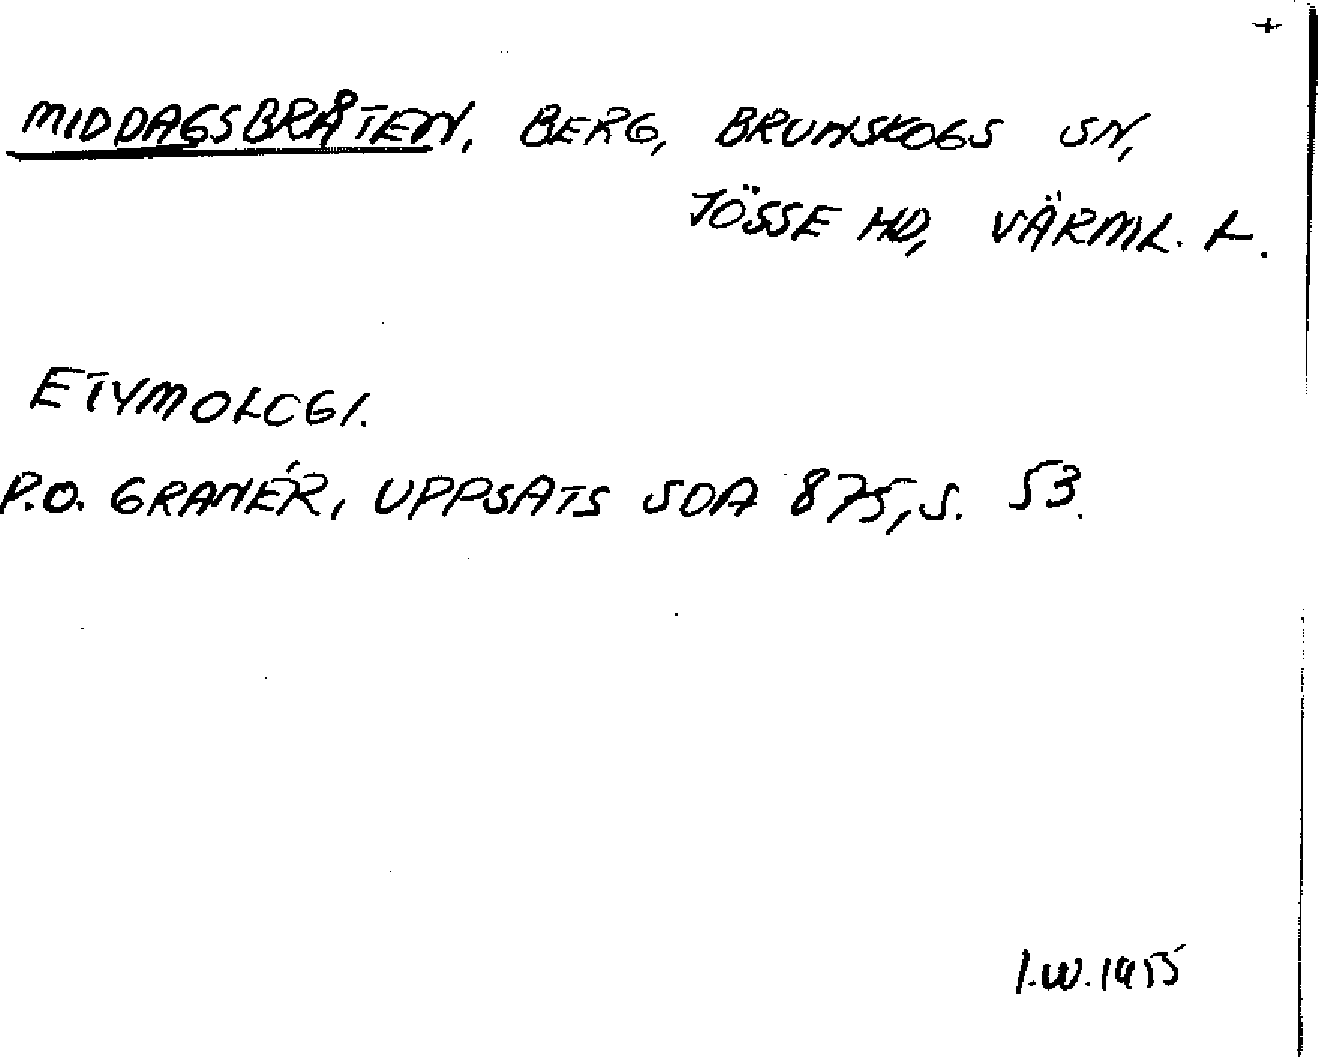 +
MIDDAGSBRÅTEN, BERG, BRUNSKOGS SN,
JÖSSE HD, VÄRML. L.
ETYMOLOGI.
P.O. GRANÉR, UPPSATS SOA 875, S. 53.
I.W. 1955